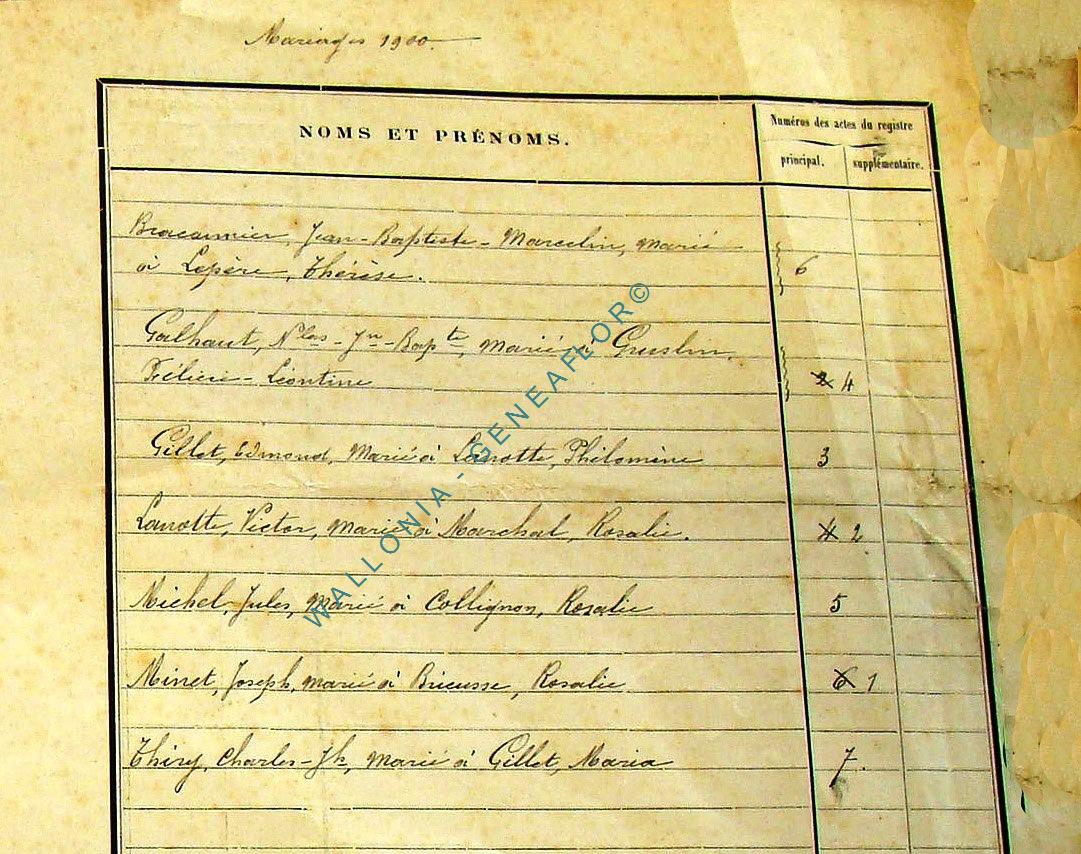 Mariages 1900.
NOMS ET PRÉNOMS.
Numéros des actes du registre
principal. supplémentaire.
Jean-Baptiste-Marcelin, marié
à Lepère, Thérèse. 6
Galhaut, Nlas-Jn-Bapte, marié à Gruslin,
Félicie-Léontine 2 4
Gillet, Edmond, Marié à Lanotte, Philomène 3
Lanotte, Victor, marié à Marchal, Rosalie. 4 2
Michel, Jules, marié à Collignon, Rosalie 5
Minet, Joseph, marié à Bricusse, Rosalie 6 1
Thiry, Charles-Jh, marié à Gillet, Maria 7.
WALLONIA - GENEAFLOR©